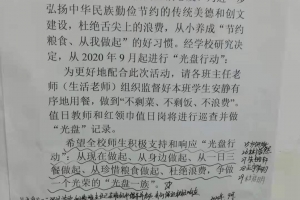 弘扬中华民族勤俭节约的传统美德和创文
建设，杜绝舌尖上的浪费，从小养成“节约
粮食、从我做起”的好习惯。经学校研究决
定，从 2020 年 9 月起进行“光盘行动”。
为更好地配合此次活动，请各班主任老
师（生活老师）组织监督好本班学生安静有
序地用餐，做到“不剩菜、不剩饭、不浪费”。
值日教师和红领巾值日岗将进行巡查并做
“光盘”记录。
希望全校师生积极支持和响应“光盘行
动”：从现在做起、从身边做起、从一日三
餐做起、从珍惜粮食做起，杜绝浪费，争做
一个光荣的“光盘一族”。